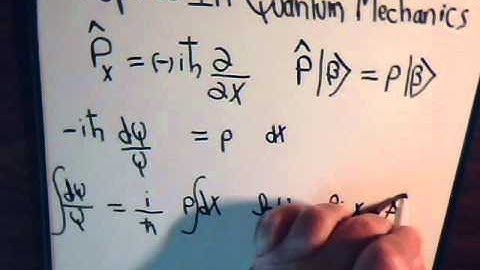 In Quantum Mechanics
P̂ₓ = (-)iħ ∂/∂x   P̂|β⟩ = P|β⟩
-iħ dφ/φ = p dx
∫dφ/φ = i/ħ p∫dx